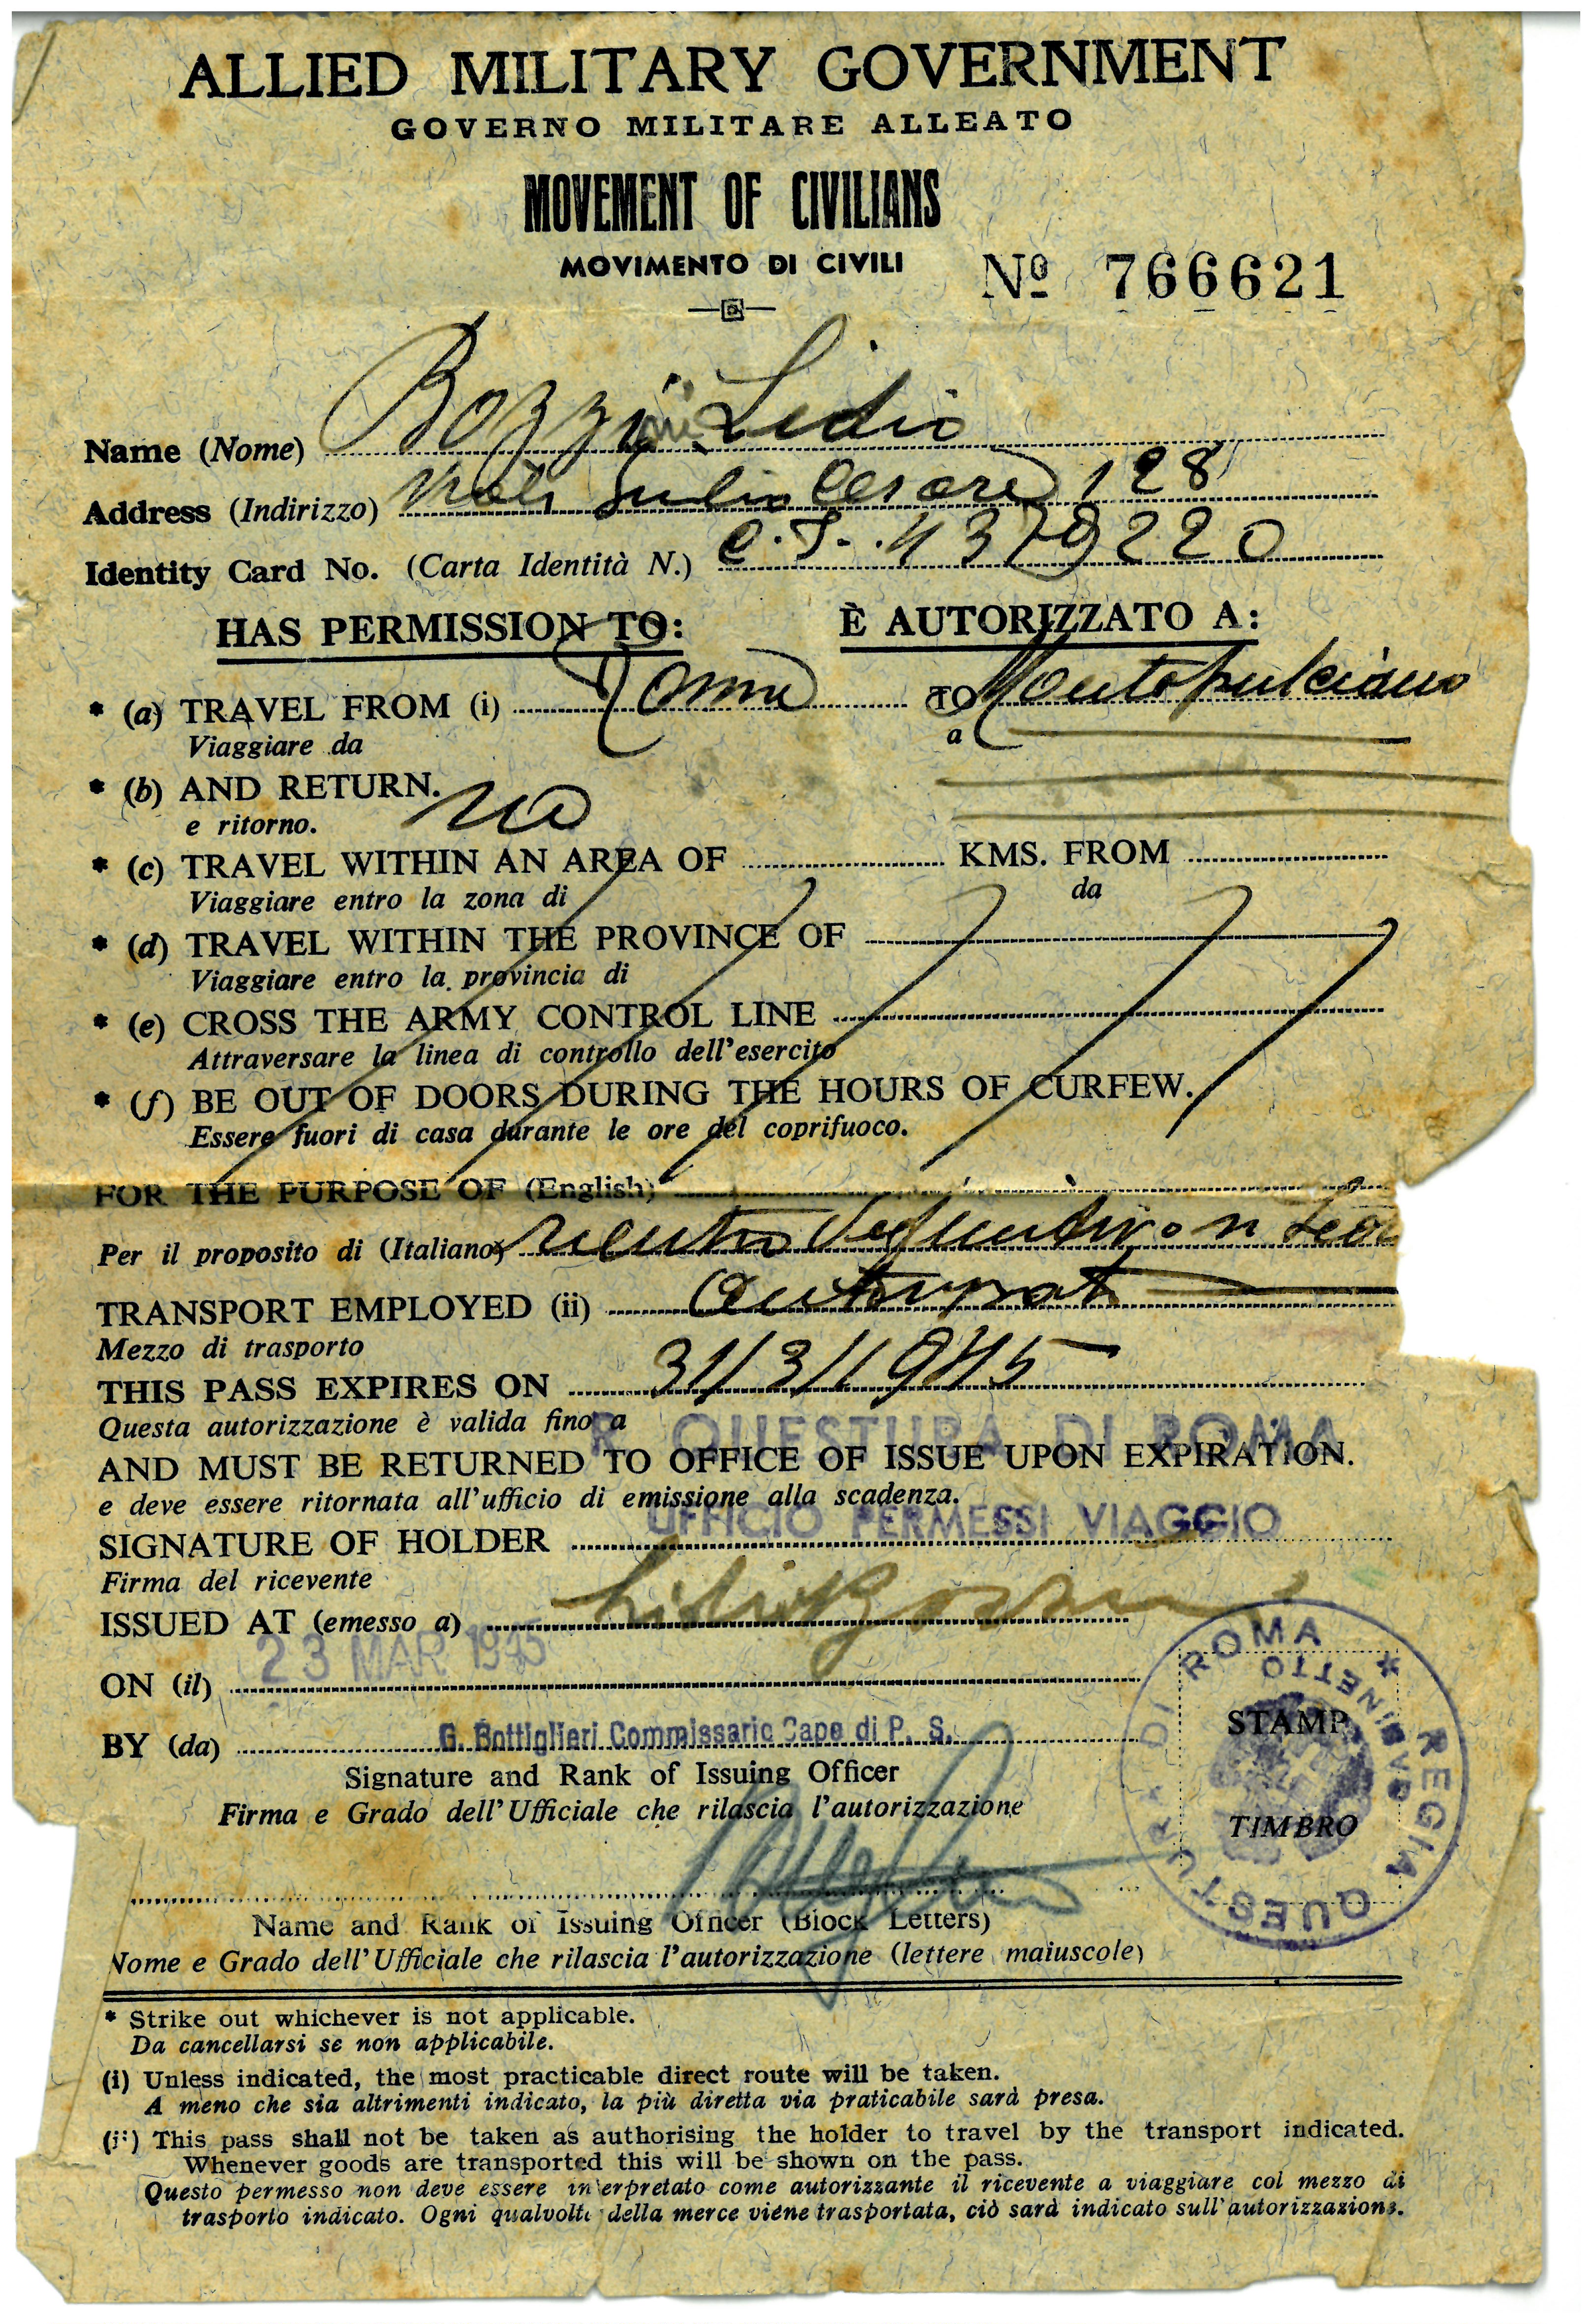 ALLIED MILITARY GOVERNMENT
GOVERNO MILITARE ALLEATO
MOVEMENT OF CIVILIANS
MOVIMENTO DI CIVILI
Nº 766621
Name (Nome) Bozzini Lidio
Address (Indirizzo) Giulio Cesare 128
Identity Card No. (Carta Identità N.) 4379220
HAS PERMISSION TO: È AUTORIZZATO A:
* (a) TRAVEL FROM (i) Roma TO Montepulciano
Viaggiare da a
* (b) AND RETURN. no
e ritorno.
* (c) TRAVEL WITHIN AN AREA OF KMS. FROM
Viaggiare entro la zona di da
* (d) TRAVEL WITHIN THE PROVINCE OF
Viaggiare entro la provincia di
* (e) CROSS THE ARMY CONTROL LINE
Attraversare la linea di controllo dell'esercito
* (f) BE OUT OF DOORS DURING THE HOURS OF CURFEW.
Essere fuori di casa durante le ore del coprifuoco.
FOR THE PURPOSE OF (English)
Per il proposito di (Italiano) rientro definitivo
TRANSPORT EMPLOYED (ii)
Mezzo di trasporto
THIS PASS EXPIRES ON 31/3/1945
Questa autorizzazione è valida fino a
R. QUESTURA DI ROMA
AND MUST BE RETURNED TO OFFICE OF ISSUE UPON EXPIRATION.
e deve essere ritornata all'ufficio di emissione alla scadenza.
UFFICIO PERMESSI VIAGGIO
SIGNATURE OF HOLDER
Firma del ricevente
Lidio Bozzini
ISSUED AT (emesso a)
23 MAR 1945
ON (il)
BY (da) G. Bottiglieri Commissario Capo di P. S.
Signature and Rank of Issuing Officer
Firma e Grado dell'Ufficiale che rilascia l'autorizzazione
STAMP
TIMBRO
REGIA QUESTURA DI ROMA * GABINETTO
Name and Rank of Issuing Officer (Block Letters)
Nome e Grado dell'Ufficiale che rilascia l'autorizzazione (lettere maiuscole)
* Strike out whichever is not applicable.
Da cancellarsi se non applicabile.
(i) Unless indicated, the most practicable direct route will be taken.
A meno che sia altrimenti indicato, la più diretta via praticabile sarà presa.
(ii) This pass shall not be taken as authorising the holder to travel by the transport indicated.
Whenever goods are transported this will be shown on the pass.
Questo permesso non deve essere interpretato come autorizzante il ricevente a viaggiare col mezzo di
trasporto indicato. Ogni qualvolta della merce viene trasportata, ciò sarà indicato sull'autorizzazione.